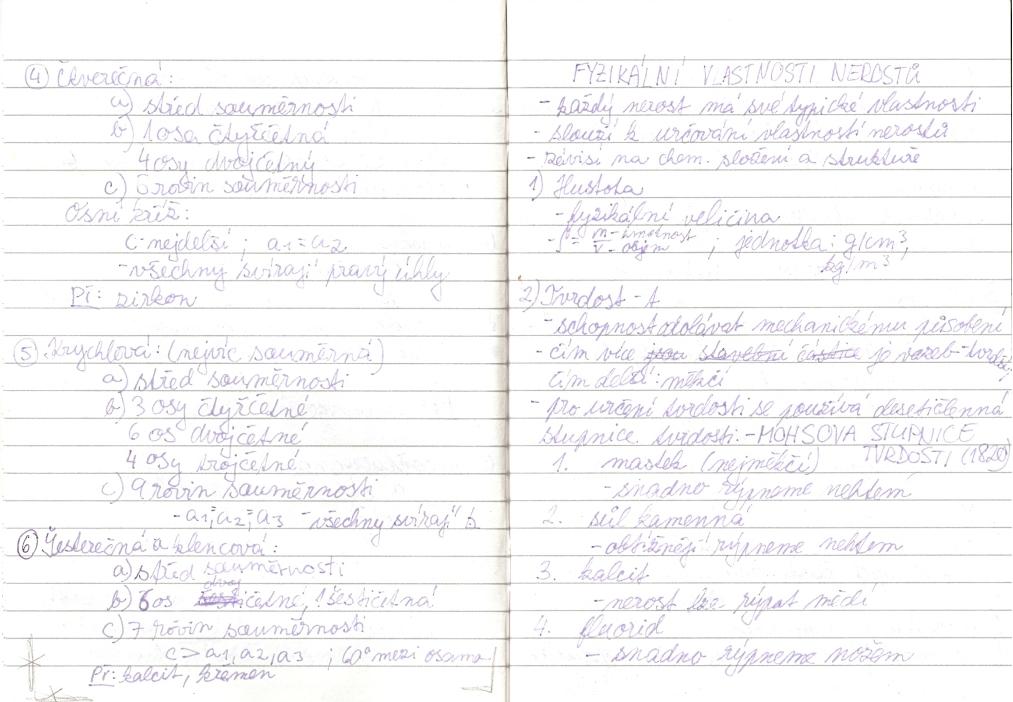 ④ Čtverečná:
a) střed souměrnosti
b) 1 osa čtyřčetná
4 osy dvojčetný
c) 5 rovin souměrnosti
Osní kříž:
c-nejdelší ; a1=a2
-všechny svírají pravý úhly
Př: zirkon
⑤ Krychlová: (nejvíc souměrná)
a) střed souměrnosti
b) 3 osy čtyřčetné
6 os dvojčetné
4 osy trojčetné
c) 9 rovin souměrnosti
-a1=a2=a3 -všechny svírají
⑥ Šesterečná a klencová:
a) střed souměrnosti
dvoj
b) 6 os četné, 1 šestičetná
c) 7 rovin souměrnosti
c>a1,a2,a3 ; 60° mezi osama
Př: kalcit, křemen
FYZIKÁLNÍ VLASTNOSTI NEROSTŮ
- každý nerost má své typické vlastnosti
- slouží k určování vlastností nerostů
- závisí na chem. složení a struktuře
1) Hustota
- fyzikální veličina
- ρ = m - hmotnost / V - objem ; jednotka: g/cm³,
kg/m³
2) Tvrdost - t
- schopnost odolávat mechanickému působení
- čím více jsou stavební částice je vazeb-tvrdší
čím delší: měkčí
- pro určení tvrdosti se používá desetičlenná
stupnice tvrdosti.-MOHSOVA STUPNICE
TVRDOSTI (1820)
1. mastek (nejměkčí)
- snadno rýpneme nehtem
2. sůl kamenná
- obtížněji rýpneme nehtem
3. kalcit
- nerost lze rýpat mědí
4. fluorid
- snadno rýpneme nožem